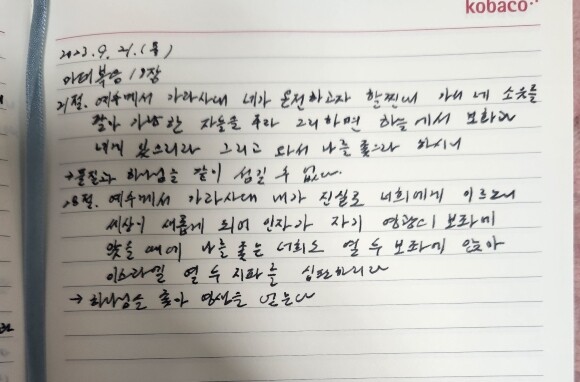 kobaco
2023. 9. 21. (목)
마태복음 19장
21절. 예수께서 가라사대 네가 온전하고자 할찐대 가서 네 소유를
팔아 가난한 자들을 주라 그리하면 하늘에서 보화가
네게 있으리라 그리고 와서 나를 좇으라 하시니
→물질과 하나님을 같이 섬길 수 없다.
28절. 예수께서 가라사대 내가 진실로 너희에게 이르노니
세상이 새롭게 되어 인자가 자기 영광의 보좌에
앉을 때에 나를 좇는 너희도 열 두 보좌에 앉아
이스라엘 열 두 지파를 심판하리라
→ 하나님을 좇아 영생을 얻는다